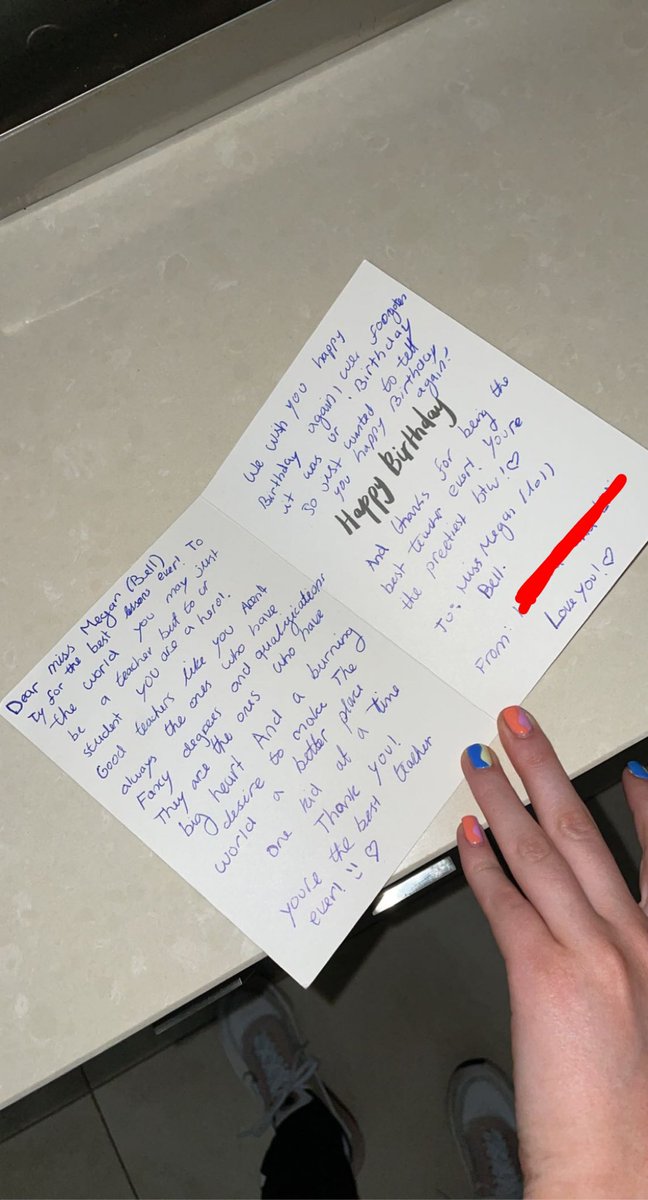 Dear miss Megan (Bell)
Ty for the best lessons ever! To
the world you may just
be a teacher but to ur
student you are a hero!
Good teachers like you Arent
always the ones who have
Fancy degrees and qualifications
They are the ones who have
big heart And a burning
desire to make The
world a better place
one kid at a time
Thank you!
you're the best teacher
ever! :) ♡
We wish you happy
Birthday again! we
it was ur Birthday
So just wanted to tell
you happy Birthday
again!
Happy Birthday
And thanks for being the
best teacher ever! you're
the preetiest btw! ♡
To: Miss Megan (lol)
Bell.
From:
Love You! ♡